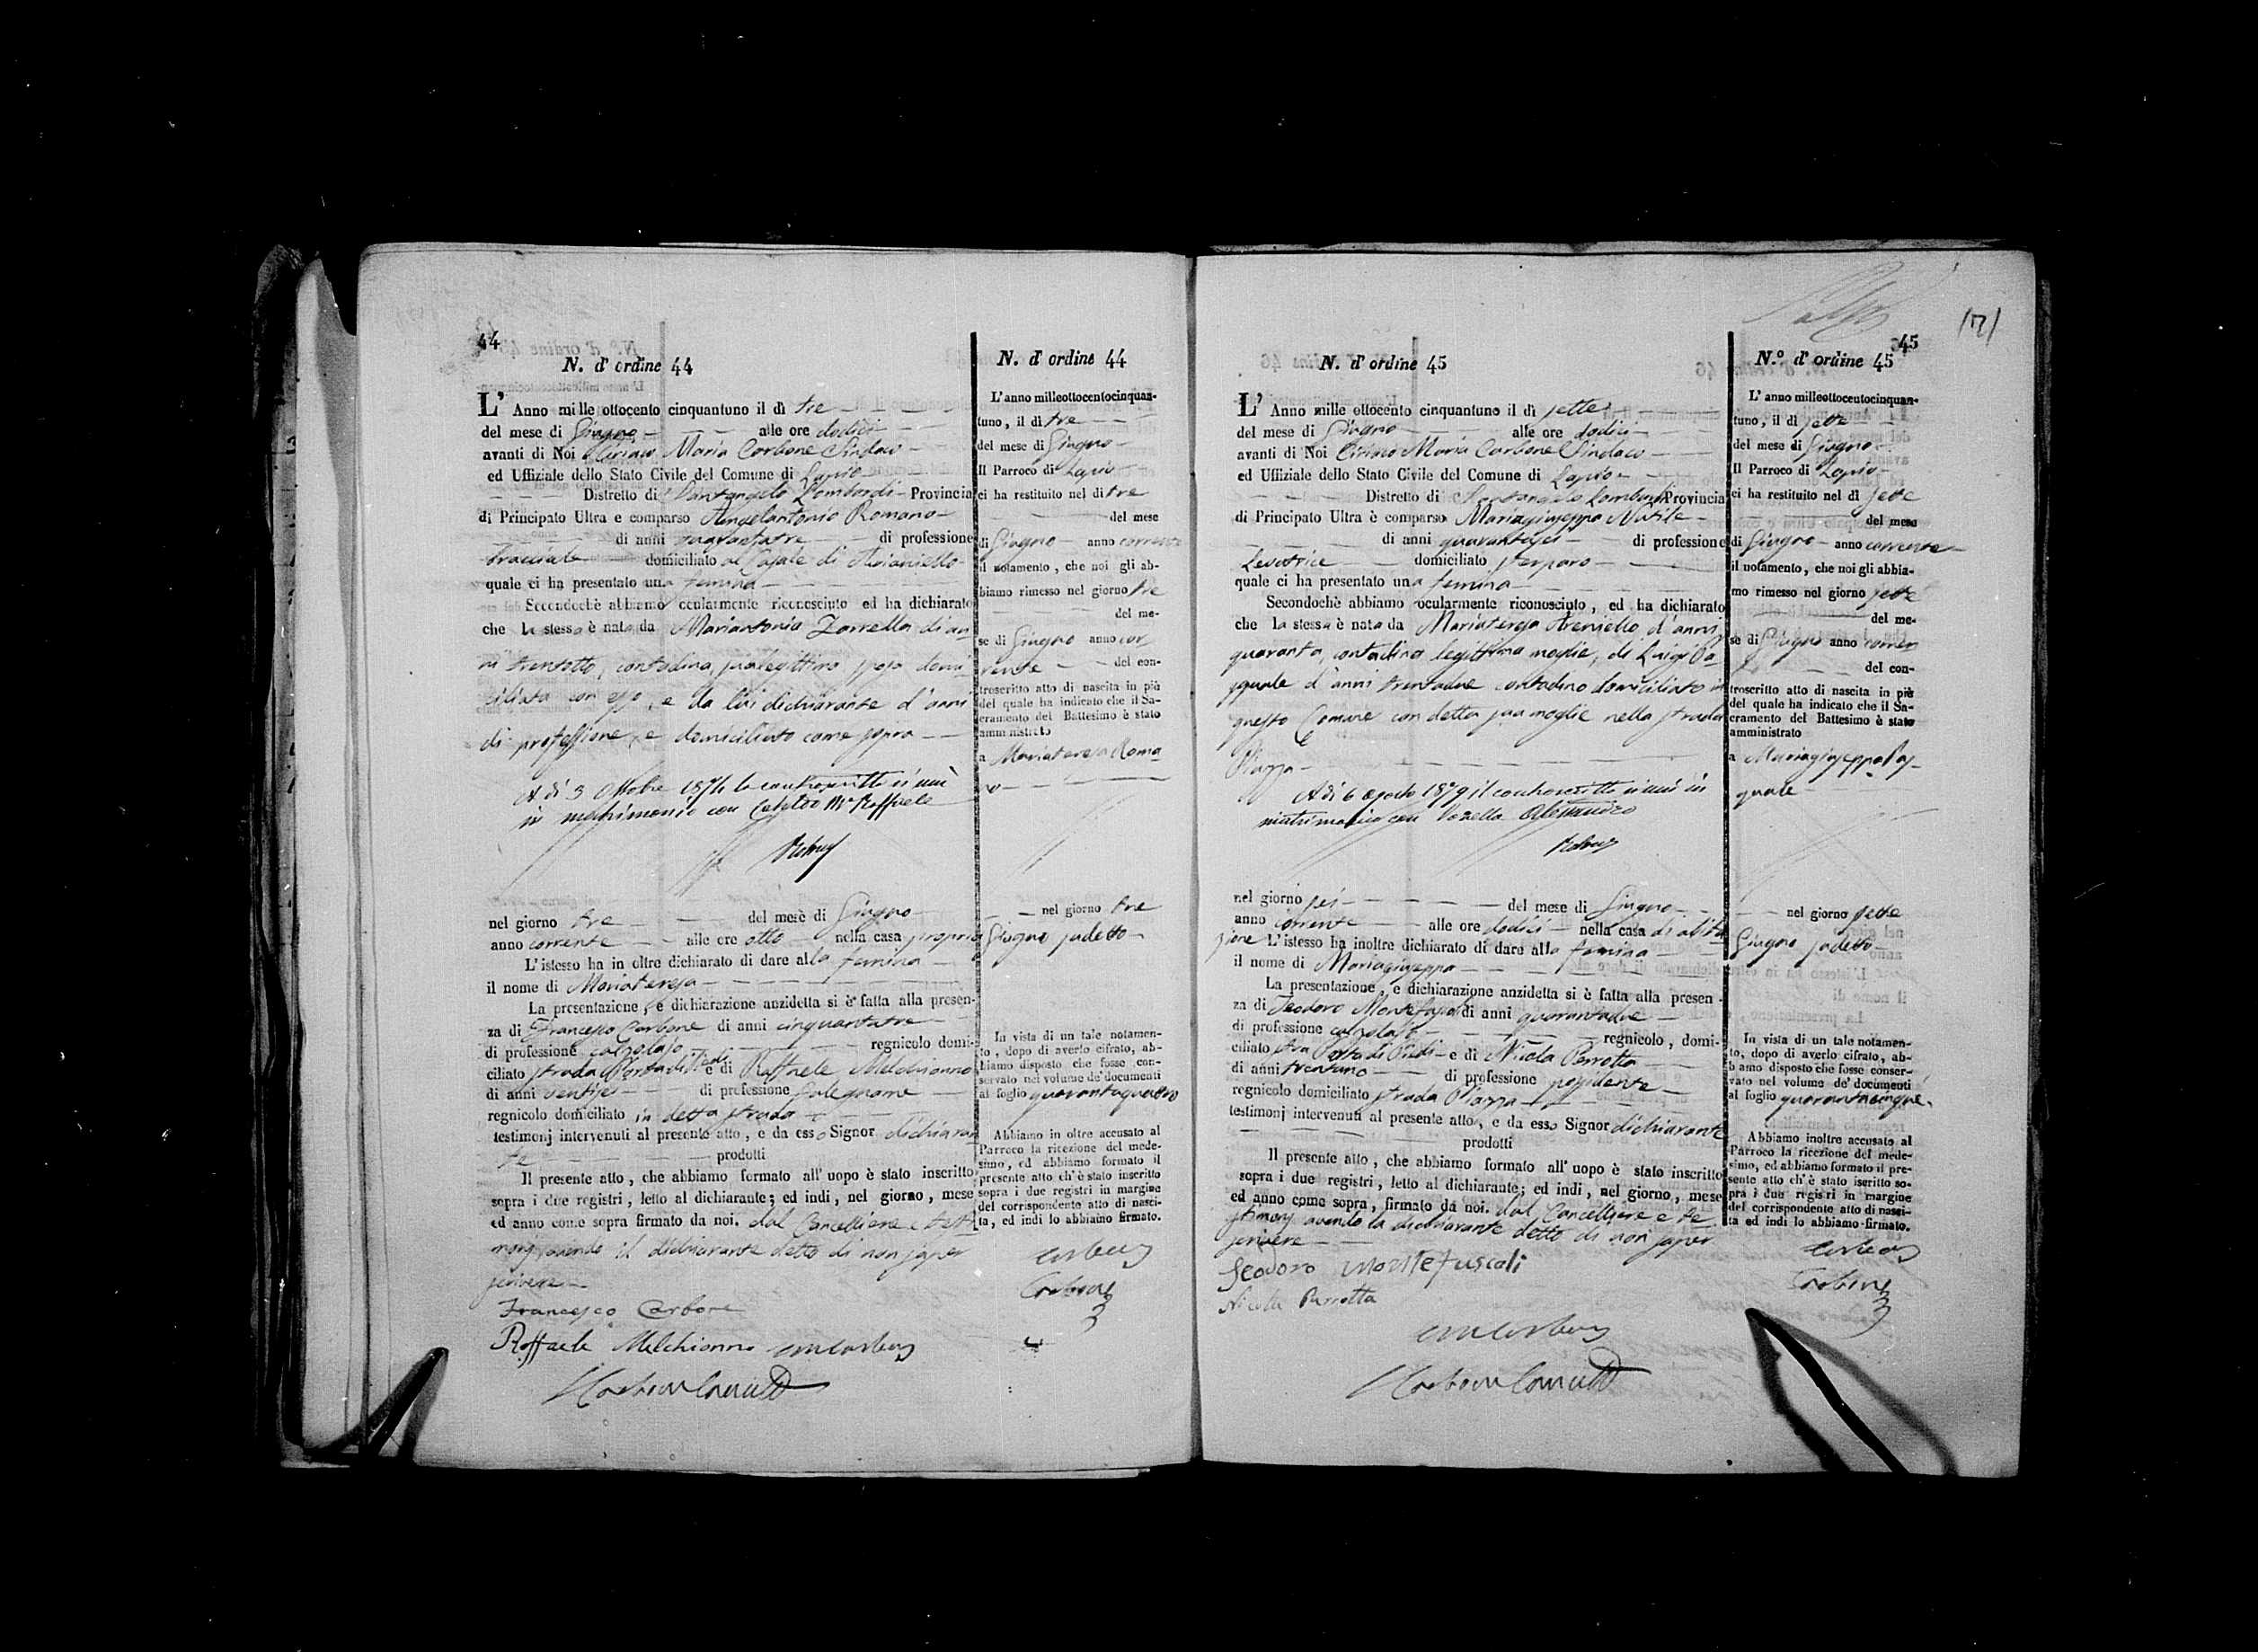 44
N. d' ordine 44
L' Anno mille ottocento cinquantuno il dì tre
del mese di Giugno alle ore dodici
avanti di Noi Ciriaco Maria Carbone Sindaco
ed Uffiziale dello Stato Civile del Comune di Lapio
Distretto di Santangelo Lombardi Provincia
di Principato Ultra e comparso Angelantonio Romano
di anni quarantatre di professione
bracciale domiciliato al Casale di Arianiello
quale ci ha presentato una femina
Secondochè abbiamo ocularmente riconosciuto ed ha dichiarato
che la stessa è nata da Mariantonia Zarrella di an
ni trentotto, contadina, sua legittima sposa domi
ciliata con esso, e da lui dichiarante d'anni
di professione, e domiciliato come sopra
A dì 3 Ottobre 1874 la controscritta si unì
in matrimonio con Raffaele
nel giorno tre del mese di Giugno
anno corrente alle ore otto nella casa propria
L'istesso ha in oltre dichiarato di dare alla femina
il nome di Mariateresa
La presentazione, e dichiarazione anzidetta si è fatta alla presen-
za di Francesco Carbone di anni cinquantatre
di professione calzolajo regnicolo domi-
ciliato strada e di Raffaele Melchionno
di anni ventisei di professione falegname
regnicolo domiciliato in detta strada
testimonj intervenuti al presente atto, e da esso Signor dichiaran
te prodotti
Il presente atto, che abbiamo formato all' uopo è stato inscritto
sopra i due registri, letto al dichiarante; ed indi, nel giorno, mese
ed anno come sopra firmato da noi. dal Cancelliere e testi
monj avendo il dichiarante detto di non saper
scrivere
Francesco Carbone
Raffaele Melchionno
N. d' ordine 44
L' anno milleottocentocinquan-
tuno, il dì tre
del mese di Giugno
Il Parroco di Lapio
ci ha restituito nel dì tre
del mese
di Giugno anno corrente
il notamento, che noi gli ab-
biamo rimesso nel giorno tre
del me-
se di Giugno anno cor
rente del con-
troscritto atto di nascita in piè
del quale ha indicato che il Sa-
cramento del Battesimo è stato
amministrato
a Mariateresa Roma
no
nel giorno tre
Giugno sudetto
In vista di un tale notamen-
to, dopo di averlo cifrato, ab-
biamo disposto che fosse con-
servato nel volume de' documenti
al foglio quarantaquattro
Abbiamo in oltre accusato al
Parroco la ricezione del mede-
simo, ed abbiamo formato il
presente atto ch'è stato inscritto
sopra i due registri in margine
del corrispondente atto di nasci-
ta, ed indi lo abbiamo firmato.
45
N. d' ordine 45
L' Anno mille ottocento cinquantuno il dì sette
del mese di Giugno alle ore dodici
avanti di Noi Ciriaco Maria Carbone Sindaco
ed Uffiziale dello Stato Civile del Comune di Lapio
Distretto di Santangelo Lombardi Provincia
di Principato Ultra è comparsa Mariagiuseppa
di anni quarantasei di professione
Levatrice domiciliato
quale ci ha presentato una femina
Secondochè abbiamo ocularmente riconosciuto, ed ha dichiarato
che la stessa è nata da Mariateresa d'anni
quaranta, contadina legittima moglie, di Luigi Pa
squale d'anni trentadue contadino domiciliato in
questo Comune con detta sua moglie nella strada
Piazza
A dì 6 Agosto 1879 il controscritto si unì in
matrimonio con Vozella
nel giorno sei del mese di Giugno
anno corrente alle ore dodici nella casa di abita
zione L'istesso ha inoltre dichiarato di dare alla femina
il nome di Mariagiuseppa
La presentazione, e dichiarazione anzidetta si è fatta alla presen-
za di Teodoro Montefuscoli di anni quarantadue
di professione calzolajo regnicolo, domi-
ciliato e di Nicola Perrotta
di anni trentuno di professione possidente
regnicolo domiciliato strada Piazza
testimonj intervenuti al presente atto, e da esso Signor dichiarante
prodotti
Il presente atto, che abbiamo formato all' uopo è stato inscritto
sopra i due registri, letto al dichiarante; ed indi, nel giorno, mese
ed anno come sopra, firmato da noi. dal Cancelliere e te
stimonj avendo la dichiarante detto di non saper
scrivere
Teodoro Montefuscoli
Nicola Perrotta
N.º d' ordine 45
L' anno milleottocentocinquan-
tuno, il dì sette
del mese di Giugno
Il Parroco di Lapio
ci ha restituito nel dì sette
del mese
di Giugno anno corrente
il notamento, che noi gli abbia-
mo rimesso nel giorno sette
del me-
se di Giugno anno corren
te del con-
troscritto atto di nascita in piè
del quale ha indicato che il Sa-
cramento del Battesimo è stato
amministrato
a Mariagiuseppa Pas
quale
nel giorno sette
Giugno sudetto
In vista di un tale notamen-
to, dopo di averlo cifrato, ab-
biamo disposto che fosse conser-
vato nel volume de' documenti
al foglio quarantacinque
Abbiamo inoltre accusato al
Parroco la ricezione del mede-
simo, ed abbiamo formato il pre-
sente atto ch'è stato iscritto so-
pra i due registri in margine
del corrispondente atto di nasci-
ta ed indi lo abbiamo firmato.